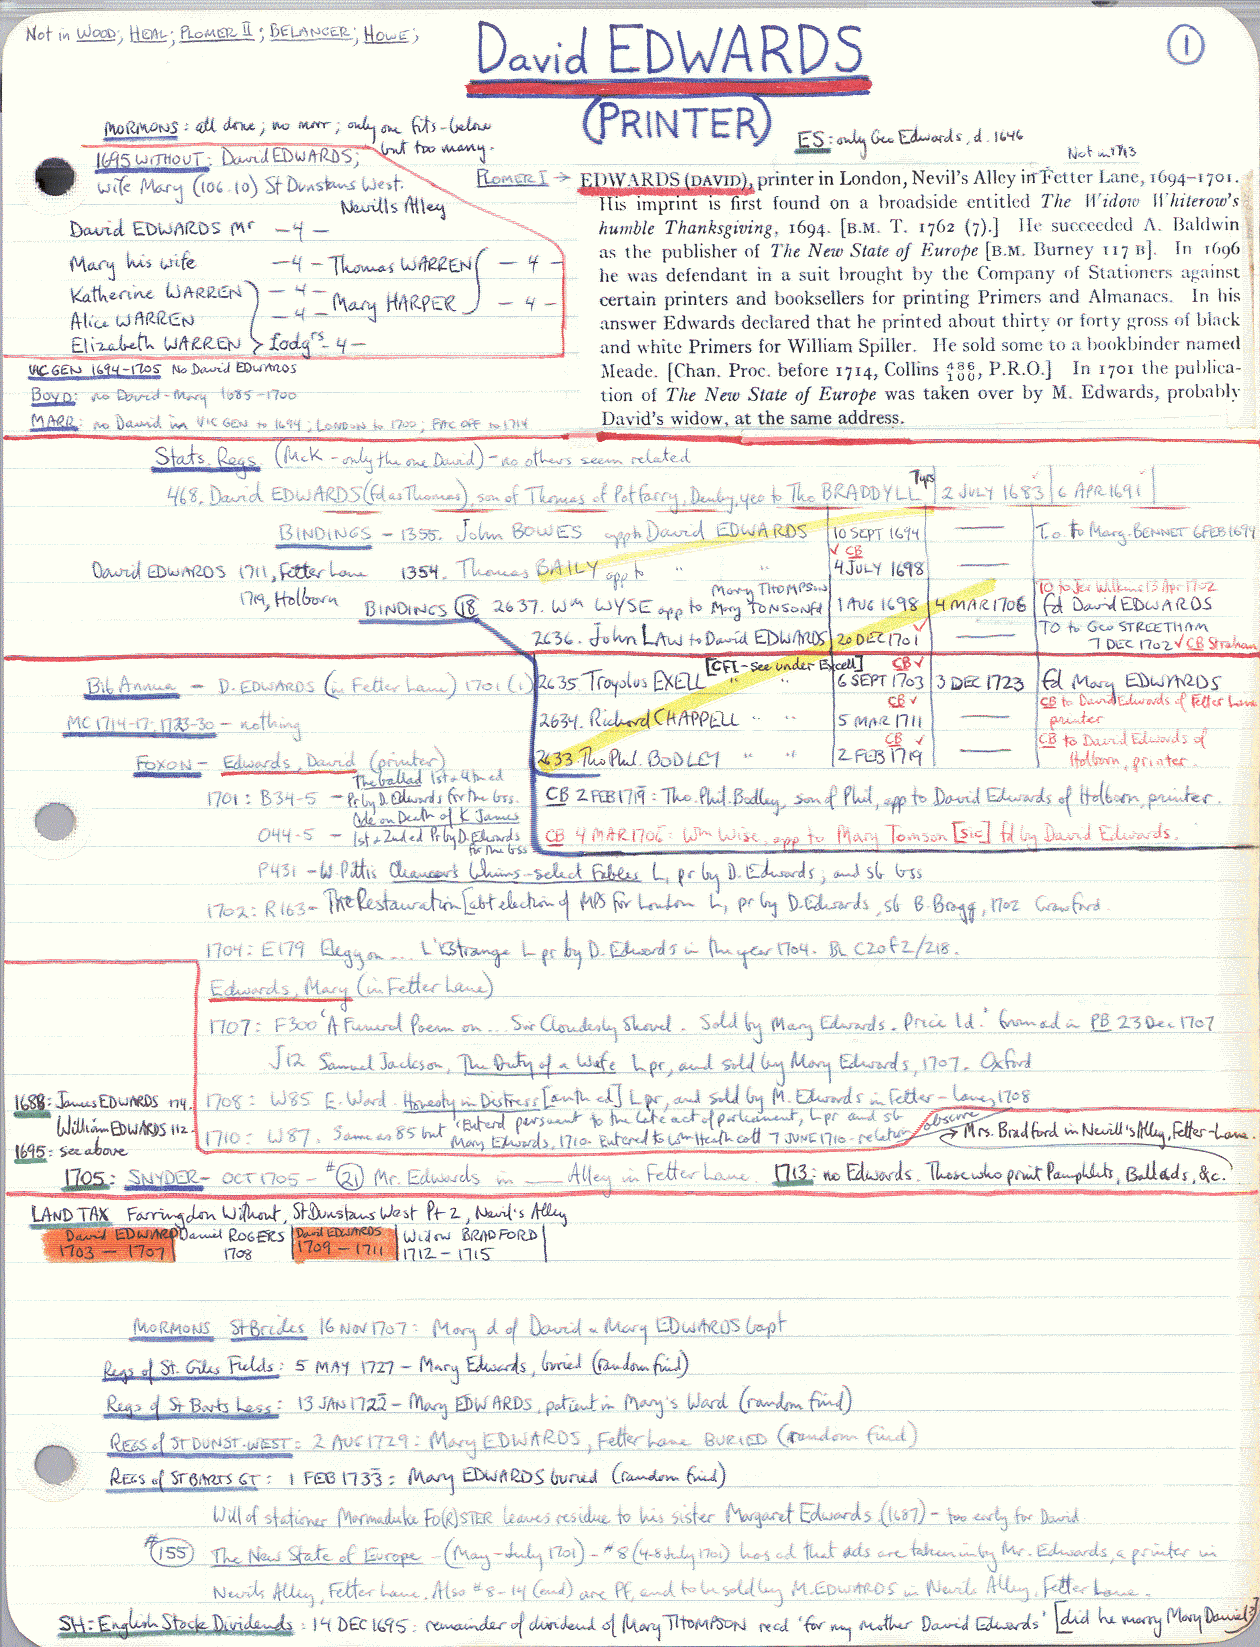 Not in WOOD; HEAL; PLOMER II; BELANGER; HOWE;
David EDWARDS
(PRINTER)
1
MORMONS: all done; no more; only one fits-below
but too many.
ES: only Geo Edwards, d. 1646
Not in 1713
1695 WITHOUT: David EDWARDS;
wife Mary (106.10) St Dunstans West.
Nevills Alley
David EDWARDS Mr -4-
Mary his wife -4- Thomas WARREN -4-
Katherine WARREN -4- Mary HARPER -4-
Alice WARREN -4-
Elizabeth WARREN Lodgrs -4-
PLOMER I → EDWARDS (DAVID), printer in London, Nevil's Alley in Fetter Lane, 1694-1701.
His imprint is first found on a broadside entitled The Widow Whiterow's
humble Thanksgiving, 1694. [B.M. T. 1762 (7).] He succeeded A. Baldwin
as the publisher of The New State of Europe [B.M. Burney 117 B]. In 1696
he was defendant in a suit brought by the Company of Stationers against
certain printers and booksellers for printing Primers and Almanacs. In his
answer Edwards declared that he printed about thirty or forty gross of black
and white Primers for William Spiller. He sold some to a bookbinder named
Meade. [Chan. Proc. before 1714, Collins 486/100, P.R.O.] In 1701 the publica-
tion of The New State of Europe was taken over by M. Edwards, probably
David's widow, at the same address.
VIC GEN 1694-1705 No David EDWARDS
BOYD: no David-Mary 1685-1700
MARR: no David in VIC GEN to 1694; LONDON to 1700; FAC OFF to 1714
Stats. Regs (McK - only the one David) - no others seem related
468. David EDWARDS (fd as Thomas), son of Thomas of Potfarry, Denby, yeo to Tho BRADDYLL 7yrs 2 JULY 1683 6 APR 1691
BINDINGS - 1355. John BOWES app to David EDWARDS 10 SEPT 1694 — T.o. to Marg. BENNET 6 FEB 1694
✓ CB
David EDWARDS 1711, Fetter Lane 1354. Thomas BAILY app to " " 4 JULY 1698 —
1719, Holborn
BINDINGS 18 2637. Wm WYSE app to Mary TONSON fd 1 AUG 1698 4 MAR 1706 fd David EDWARDS
Mary THOMPSON
TO to Jer Wilkins 13 Apr 1702
2636. John LAW to David EDWARDS 20 DEC 1701 — TO to Geo STREETHAM
7 DEC 1702 ✓ CB Strahan
[CFI - See under Excell] CB ✓
Bib Annua - D. EDWARDS (in Fetter Lane) 1701 (1) 2635 Troyolus EXELL " " 6 SEPT 1703 3 DEC 1723 fd Mary EDWARDS
MC 1714-17; 1723-30 - nothing
2634. Richard CHAPPELL " " 5 MAR 1711 — CB to David Edwards of Fetter Lane
CB ✓
printer
2633. Tho Phil. BODLEY " " 2 FEB 1719 — CB to David Edwards of
CB ✓
Holborn, printer.
FOXON - Edwards, David (printer)
The ballad 1st & 4th ed
1701: B34-5 - Pr by D. Edwards for the bss.
CB 2 FEB 1719: Tho. Phil. Bodley, son of Phil, app to David Edwards of Holborn, printer.
Ode on Death of K James
O44-5 - 1st & 2nd ed Pr by D. Edwards
for the bss
CB 4 MAR 1706: Wm Wise, app to Mary Tomson [sic] fd by David Edwards.
P431 - W. Pittis Chaucer's Whims - select Fables L, pr by D. Edwards; and sb bss
1702: R163 - The Restauration [abt election of MPS for London L, pr by D. Edwards, sb B. Bragg, 1702 Crawford.
1704: E179 Elegy on ... L'Estrange L pr by D. Edwards in the year 1704. BL C20 f2/218.
Edwards, Mary (in Fetter Lane)
1707: F300 'A Funeral Poem on ... Sir Cloudesly Shovel. Sold by Mary Edwards. Price 1d.' from ad in PB 23 Dec 1707
J12 Samuel Jackson, The Duty of a Wife L pr, and sold by Mary Edwards, 1707. Oxford
1688: James EDWARDS 174.
1708: W85 E. Ward. Honesty in Distress [anth ed] L pr, and sold by M. Edwards in Fetter-lane, 1708
William EDWARDS 112.
1710: W87. Same as 85 but 'Enterd persuant to the late act of parliament, L pr and sb
Mary Edwards, 1710. Entered to Wm Heathcott 7 JUNE 1710 - relation obscure
→ Mrs. Bradford in Nevill's Alley, Fetter-Lane.
1695: see above
1705: SNYDER - OCT 1705 - #21 Mr. Edwards in — Alley in Fetter Lane. 1713: no Edwards. Those who print Pamphlets, Ballads, &c.
LAND TAX Farringdon Without, St Dunstans West Pt 2, Nevil's Alley
David EDWARDS Daniel ROGERS David EDWARDS Widow BRADFORD
1703 - 1707 1708 1709 - 1711 1712 - 1715
MORMONS St Brides 16 NOV 1707: Mary d of David & Mary EDWARDS bapt
Regs of St. Giles Fields: 5 MAY 1727 - Mary Edwards, buried (random find)
Regs of St Barts Less: 13 JAN 1722 - Mary EDWARDS, patient in Mary's Ward (random find)
REGS of ST DUNST-WEST: 2 AUG 1729: Mary EDWARDS, Fetter Lane BURIED (random find)
REGS of ST BARTS GT: 1 FEB 1733: Mary EDWARDS buried (random find)
Will of stationer Marmaduke FO(R)STER leaves residue to his sister Margaret Edwards (1687) - too early for David
#155 The New State of Europe - (May - July 1701) - #8 (4-8 July 1701) has ad that ads are taken in by Mr. Edwards, a printer in
Nevils Alley, Fetter Lane. Also #8-14 (end) are Pf, and to be sold by M. EDWARDS in Nevils Alley, Fetter Lane.
SH: English Stock Dividends: 14 DEC 1695: remainder of dividend of Mary THOMPSON recd 'for my mother David Edwards' [did he marry Mary Daniel?]